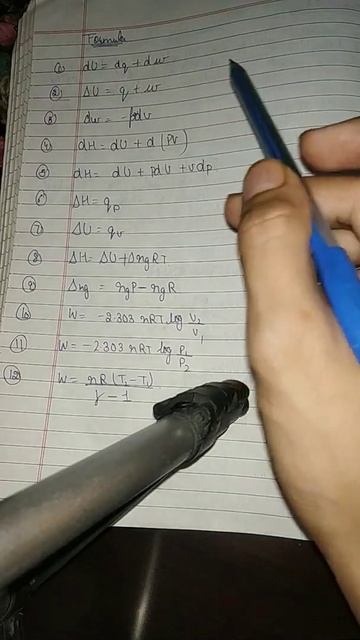 Formula
① dU = dq + dw
② ΔU = q + w
③ dw = -pdv
④ dH = dU + d(PV)
⑤ dH = dU + pdU + vdp
⑥ ΔH = qp
⑦ ΔU = qv
⑧ ΔH = ΔU + ΔngRT
⑨ Δng = ngP - ngR
⑩ W = -2.303 nRT log V2/V1
⑪ W = -2.303 nRT log P1/P2
⑫ W = nR(T2-T1)/γ-1